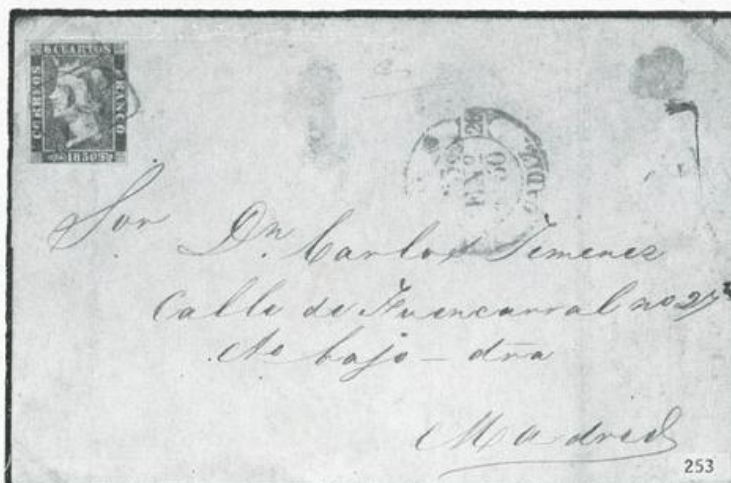 6 CUARTOS
CORREOS
FRANCO
1850
CADIZ
28
30
Sor Dn. Carlos Jimenez
Calle de Fuencarral no 27
bajo - dra
Madrid
253